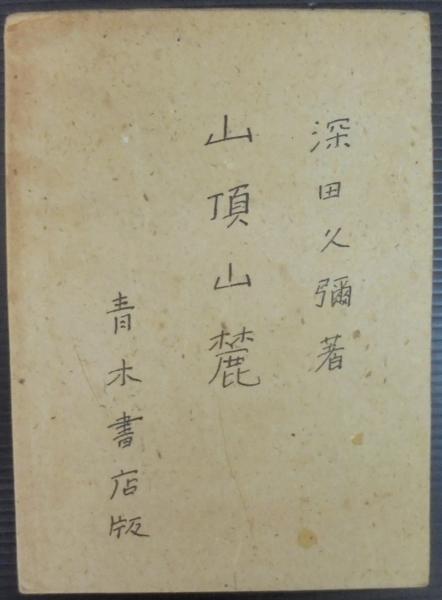 深田久彌著
山頂山麓
青木書店版